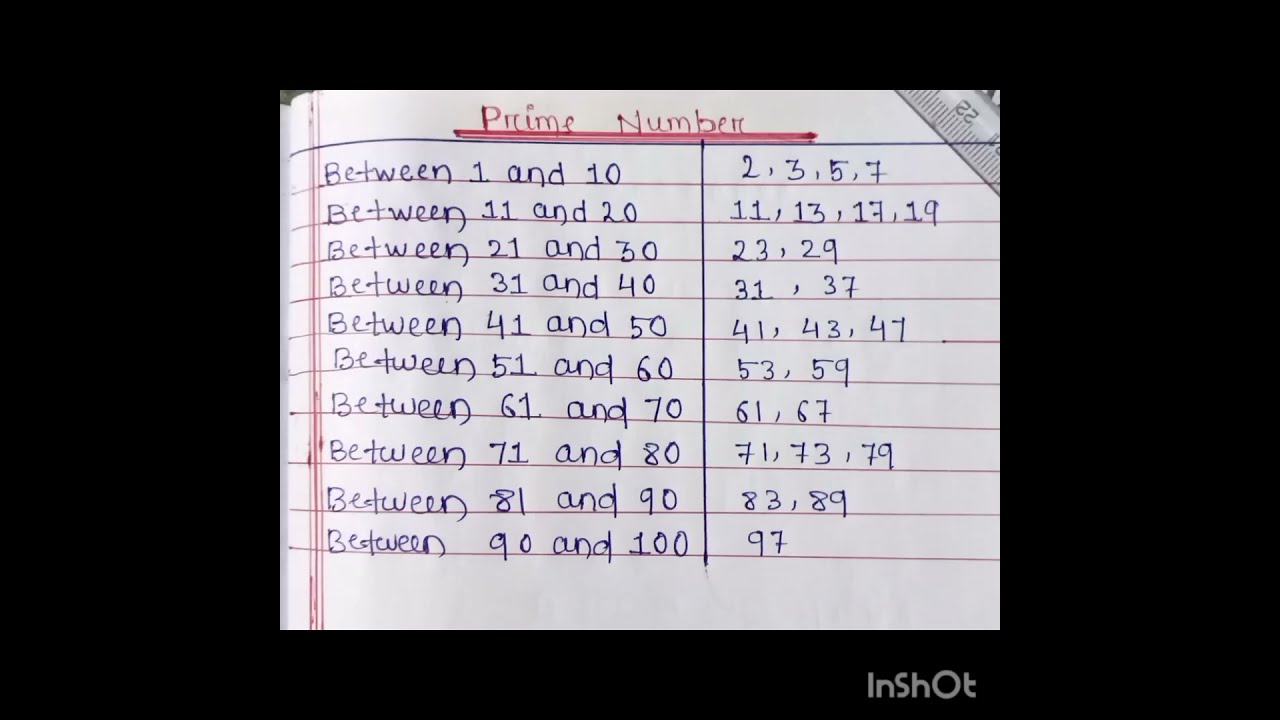 Prime Number
Between 1 and 10 2, 3, 5, 7
Between 11 and 20 11, 13, 17, 19
Between 21 and 30 23, 29
Between 31 and 40 31, 37
Between 41 and 50 41, 43, 47
Between 51 and 60 53, 59
Between 61 and 70 61, 67
Between 71 and 80 71, 73, 79
Between 81 and 90 83, 89
Between 90 and 100 97
22
InShOt